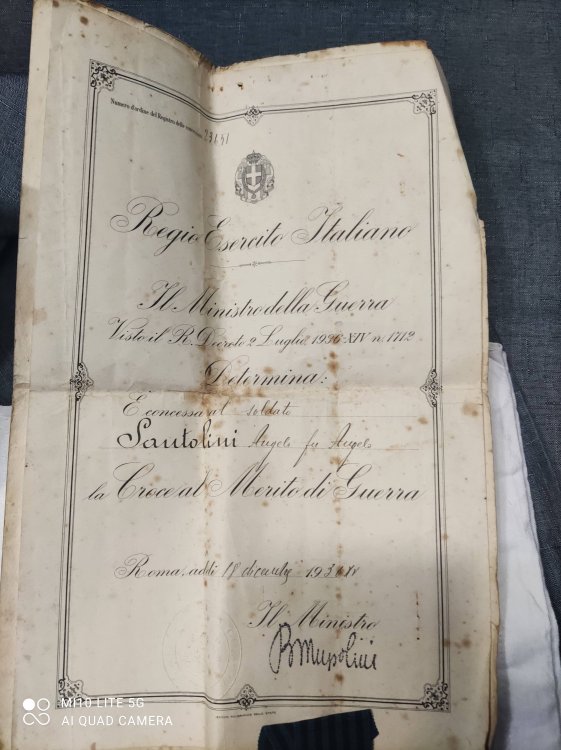 Numero d'ordine del Registro delle concessioni 23151
Regio Esercito Italiano
Il Ministro della Guerra
Visto il R. Decreto 2 Luglio 1936-XIV n. 1712
Determina:
È concessa al soldato
Santolini Angelo fu Angelo
la Croce al Merito di Guerra
Roma, addì 18 dicembre 1936 XV
Il Ministro
B Mussolini
MI 10 LITE 5G
AI QUAD CAMERA